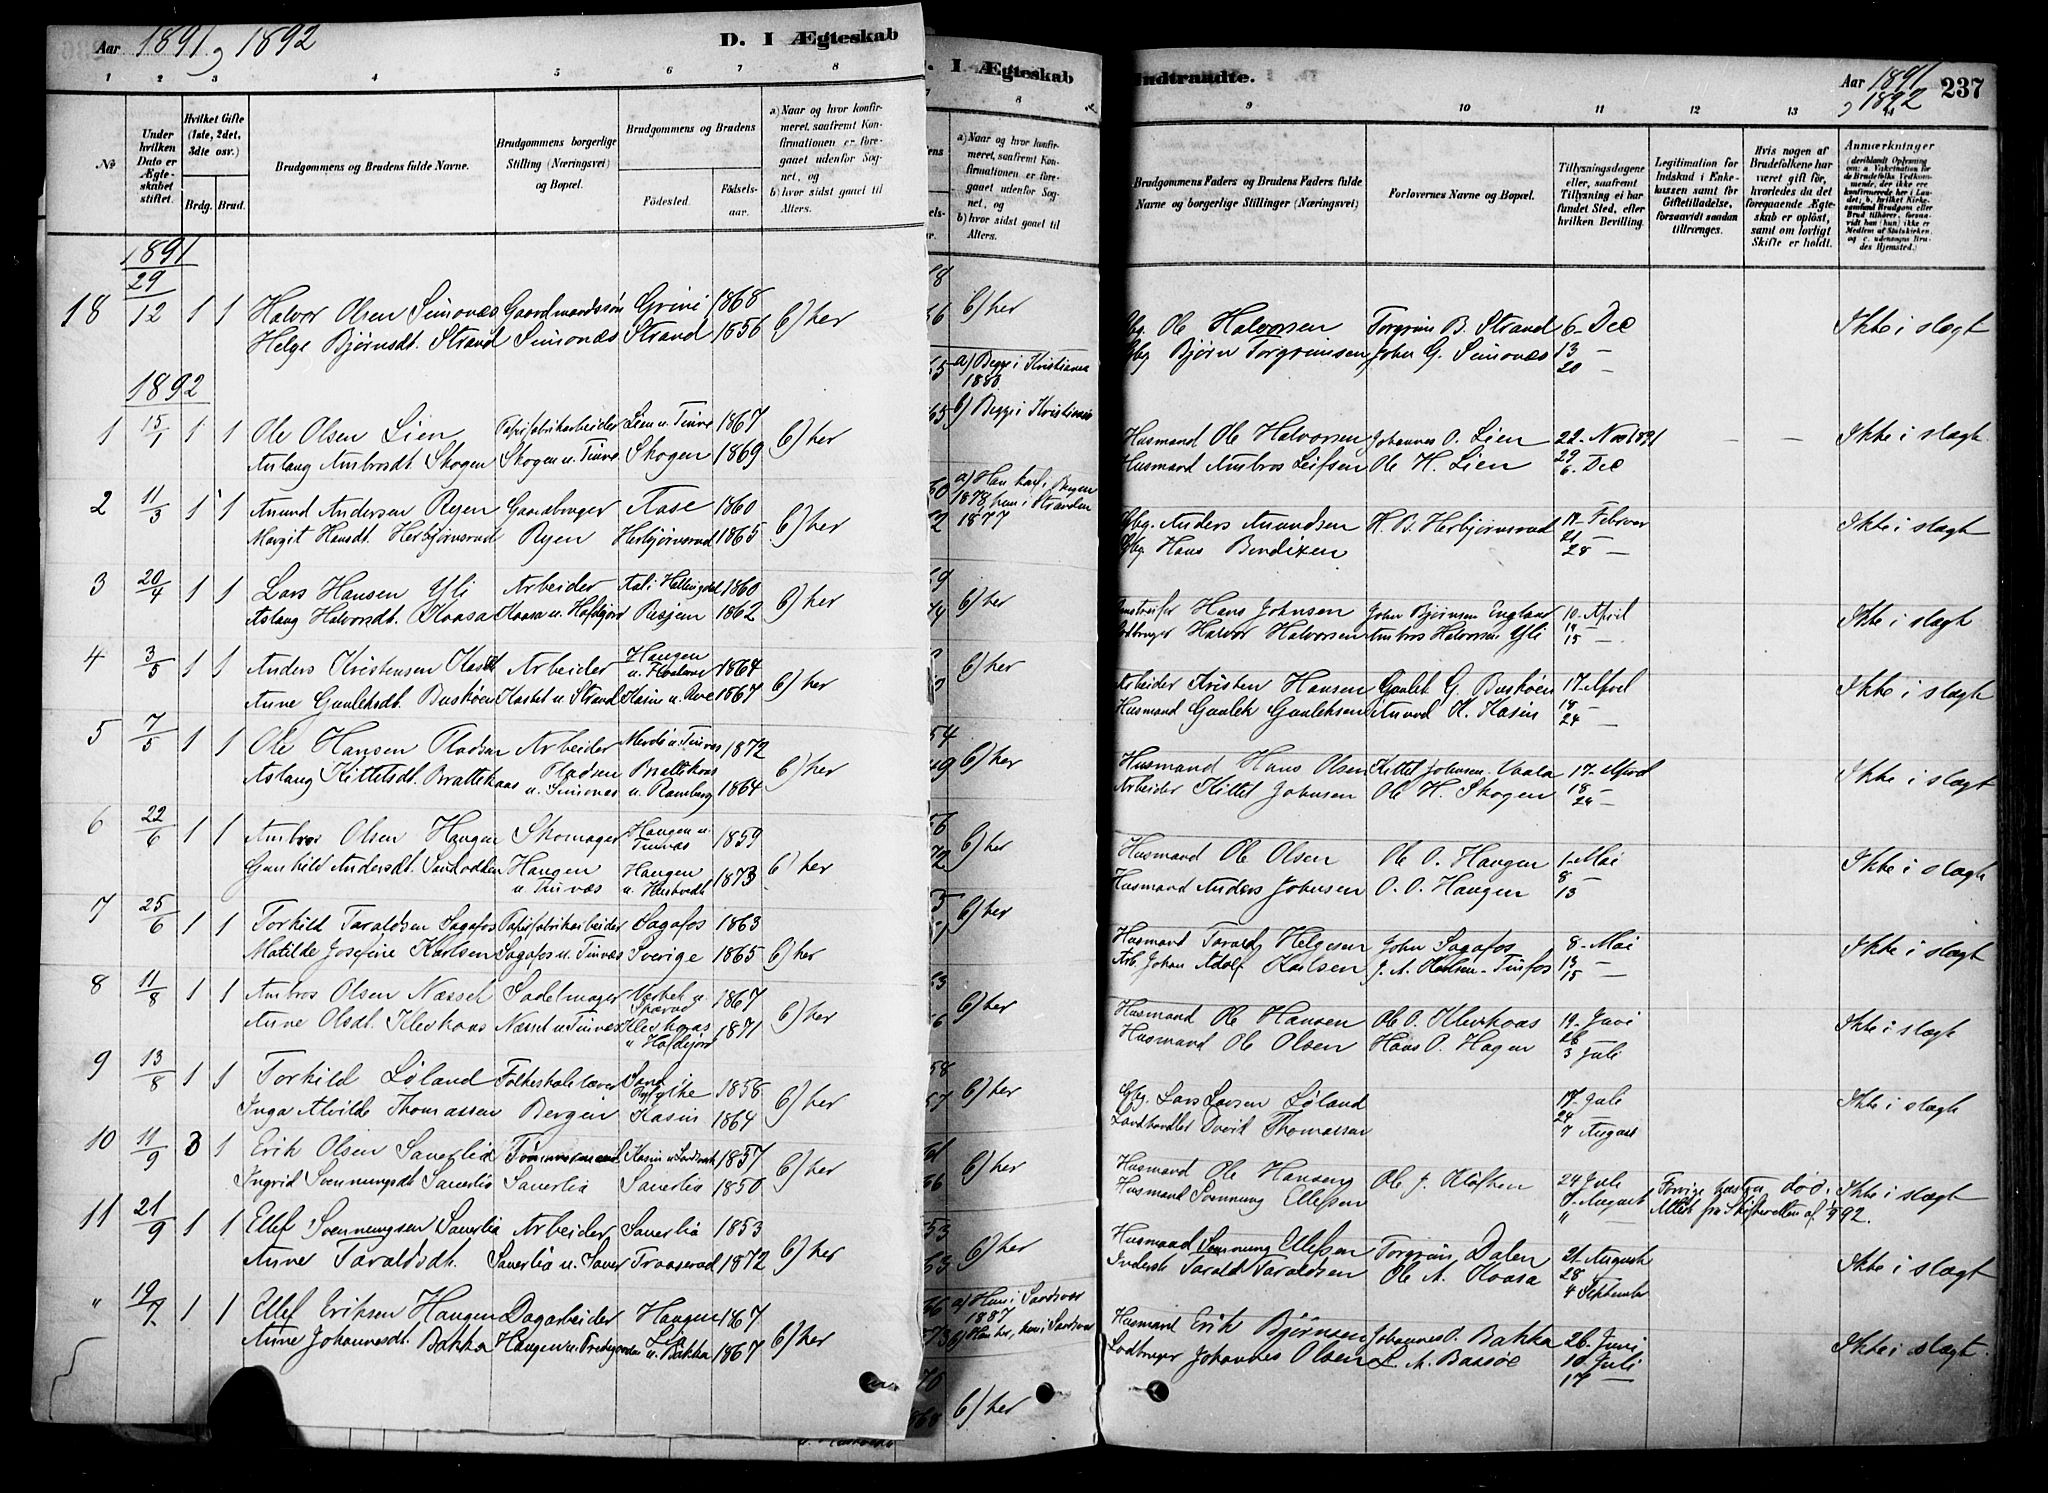 Aar 1891 og 1892
D. I Ægteskab
1 2 3 4 5 6 7 8
No
Under hvilken Dato er Ægteskabet stiftet.
Hvilket Gifte (1ste, 2det, 3die osv.)
Brdg. Brud.
Brudgommens og Brudens fulde Navne.
Brudgommens borgerlige Stilling (Næringsvei) og Bopæl.
Brudgommens og Brudens
Fødested. Fødselsaar.
a) Naar og hvor konfirmeret, saafremt Konfirmationen er foregaaet udenfor Sognet, og
b) hvor sidst gaaet til Alters.
1891
18 29/12 1 1 Halvor Olsen Simonæs Gaardmandssøn Grini 1868 b) her
Helge Bjørnsdt. Strand Simonæs Strand 1856
1892
1 15/1 1 1 Ole Olsen Lien Papirfabrikarbeider Lien u. Tinne 1867 b) her
Aslaug Ambrosdt. Skogen Skogen u. Tinnes Skogen 1869
2 11/3 1 1 Amund Andersen Ryen Gaardbruger Aase 1860 b) her
Margit Hansdt. Herbjørnsrud Ryen Herbjørnsrud 1865
3 20/4 1 1 Lars Hansen Yli Arbeider Aal i Hallingdal 1860 b) her
Aslaug Halvorsdt. Kaasa Kaasa u. Hafsfjord Besjem 1862
4 3/5 1 1 Anders Kristensen Kastet Arbeider Haugen 1864 b) her
Anne Gunleksdt. Buskøen Kastet u. Strand Kasin u. 1867
5 7/5 1 1 Ole Hansen Pladsen Arbeider 1872 b) her
Aslaug Kittelsdt. Brattekaas Pladsen u. Simonæs Brattekaas u. Ramberg 1864
6 22/6 1 1 Ambros Olsen Haugen Skomager Haugen u. Tinnæs 1859 b) her
Gunhild Andersdt. Haugen u. Tinnæs Haugen 1873
7 25/6 1 1 Torkild Taraldsen Sagafos Papirfabrikarbeider Sagafos 1863 b) her
Matilde Josefine Karlsen Sagafos u. Tinnæs Sverige 1865
8 11/8 1 1 Ambros Olsen Næsset Sadelmager 1867 b) her
Anne Olsdt. Klevkaas Næsset u. Tinnæs Klevkaas 1871
9 13/8 1 1 Torkild Løland Folkeskolelærer Sand Ryfylke 1858 b) her
Inga Alvilde Thomassen Bergen Kasin 1864
10 11/9 3 1 Erik Olsen Saverlia Tømmermand 1857 b) her
Ingrid Svennungsdt. Saverlia Saverlia Saverlia 1850
11 21/9 1 1 Ellef Svennungsen Saverlia Arbeider Saverlia 1853 b) her
Anne Taraldsdt. Saverlia u. Saver Traaserud 1872
" 19/7 1 1 Ellef Eriksen Haugen Dagarbeider Haugen 1867 b) her
Anne Johannesdt. Bakka Haugen Lia u. Bakka 1867
I Ægteskab
8
a) Naar og hvor konfirmeret, saafremt Konfirmationen er foregaaet udenfor Sognet, og
b) hvor sidst gaaet til Alters.
b) her
a) Begge i Kristiania 1880
b) Begge i Kristiania
a) Han konf. i Bergen 1878, hun i Stranden 1877
b) her
b) her
b) her
b) her
b) her
b) her
b) her
b) her
b) her
a) Hun i Sandsvær 1887
b) Han her, hun i Sandsvær
b) her
Indtraadte.
Aar 1891 og 1892 237
9 10 11 12 13 14
Brudgommens Faders og Brudens Faders fulde Navne og borgerlige Stillinger (Næringsvei)
Forlovernes Navne og Bopæl.
Tillysningsdagene eller, saafremt Tillysning ei har fundet Sted, efter hvilken Bevilling.
Legitimation for Indskud i Enkekassen samt for Giftetilladelse, forsaavidt saadan tiltrænges.
Hvis nogen af Brudefolkene har været gift før, hvorledes da det foregaaende Ægteskab er opløst, samt om lovligt Skifte er holdt.
Anmærkninger
Gbg. Ole Halvorsen Torgrim B. Strand 6 - Dec Ikke i slægt
Gbg Bjørn Torgrimsen John G. Simonæs 13 -
20 -
Husmand Ole Halvorsen Johannes O. Lien 22 - Nov 1891 - - Ikke i slægt
Husmand Ambros Leifsen Ole H. Lien 29
6 - Dec
Gbg. Anders Amundsen H. B. Herbjørnsrud 14 - Februar Ikke i slægt
Gbg Hans Bendixen 21
28 -
Hans Johnsen John Bjørnsen England 10 - April Ikke i slægt
Halvor Halvorsen Ambros Halvorsen Yli 14
15 -
Arbeider Kristen Hansen Gunlek G. Buskøen 17 - April Ikke i slægt
Husmand Gunlek Gunleksen Amund K. Kasin 18
24 -
Husmand Hans Olsen Kittel Johnsen Vaala 17 - April Ikke i slægt
Arbeider Kittel Johnsen Ole H. Skogen 18
24 -
Husmand Ole Olsen Ole O. Haugen 1 - Mai Ikke i slægt
Husmand Anders Johnsen O. O. Haugen 8
15 -
Husmand Tarald Helgesen John Sagafos 8 - Mai Ikke i slægt
Arb. Johan Adolf Karlsen J. A. Karlsen - Tinfos 13
15 -
Husmand Ole Hansen Ole O. Klevkaas 19 - Juni Ikke i slægt
Husmand Ole Olsen Hans O. Hagen 26
3 Juli
Gbg. Lars Larsen Løland 17 - Juli Ikke i slægt
Landhandler David Thomassen 24
7 August
Husmand Ole Hansen Ole J. Kløften 24 Juli Forrige hustru død. Ikke i slægt
Husmand Svennung Ellefsen 7 August Attest fra Skifteretten af
" -
Husmand Svennung Ellefsen Torgrim Dalen 21 - August Ikke i slægt
Inderst Tarald Taraldsen Ole A. Kaasa 28 -
4 September
Husmand Erik Bjørnsen Johannes O. Bakka 26 - Juni Ikke i slægt
Johannes Olsen L. A. Bassøe 10 - Juli
17 -